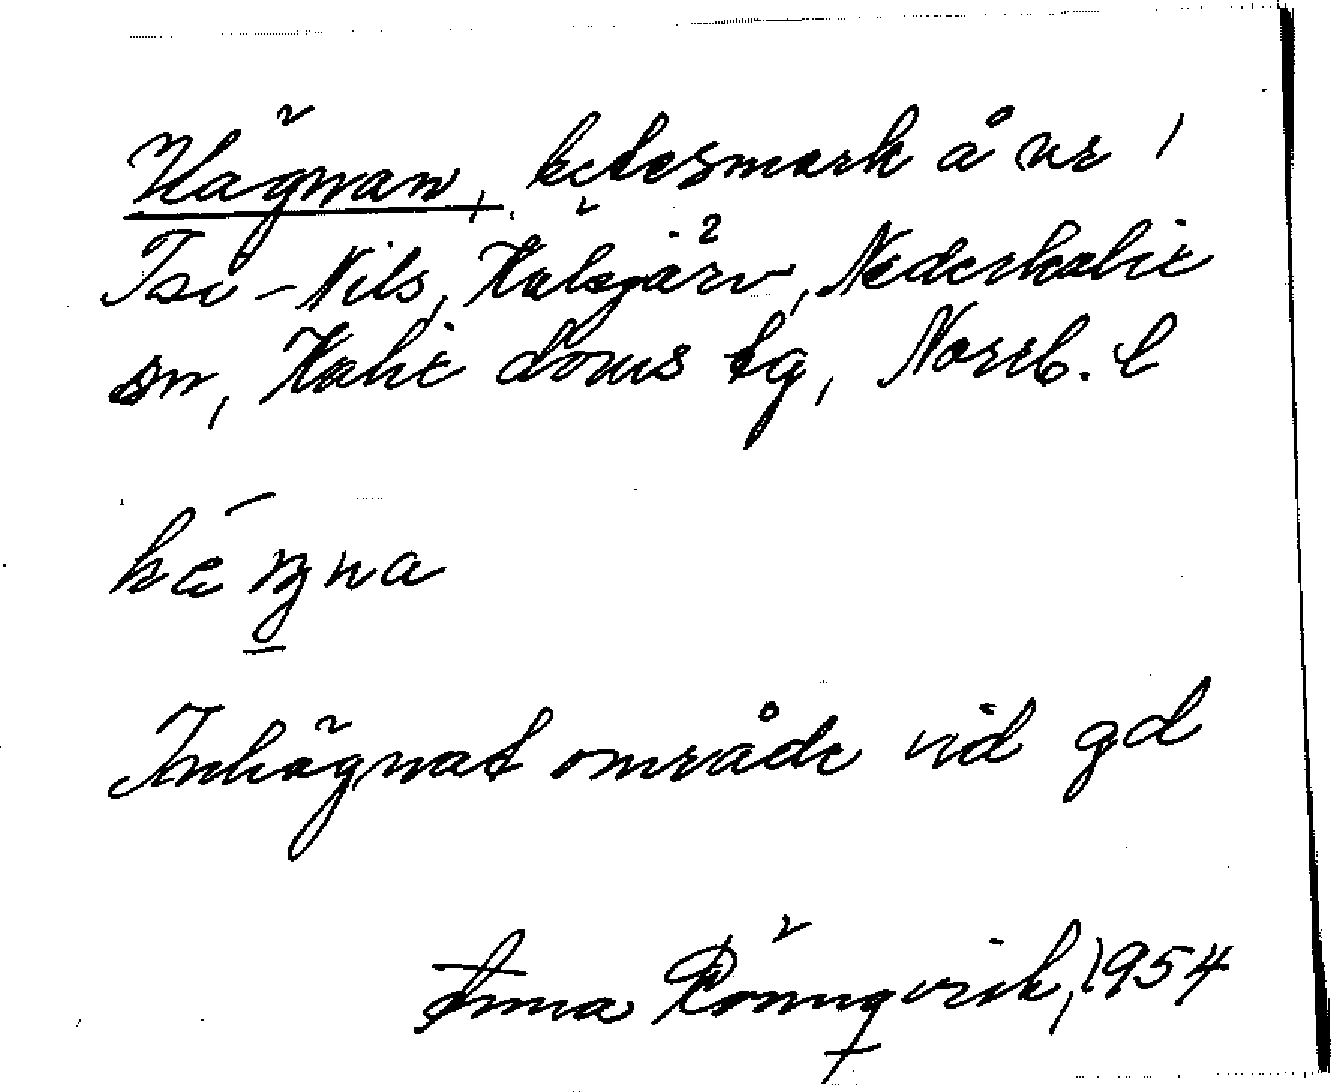 Hägnan, betesmark å nr 1
Isi-Nils, Halsjärv, Nederkalix
sn, Kalix doms tg, Norrb. l
häŋna
Inhägnat område vid gd
Anna Rönnqvist, 1954